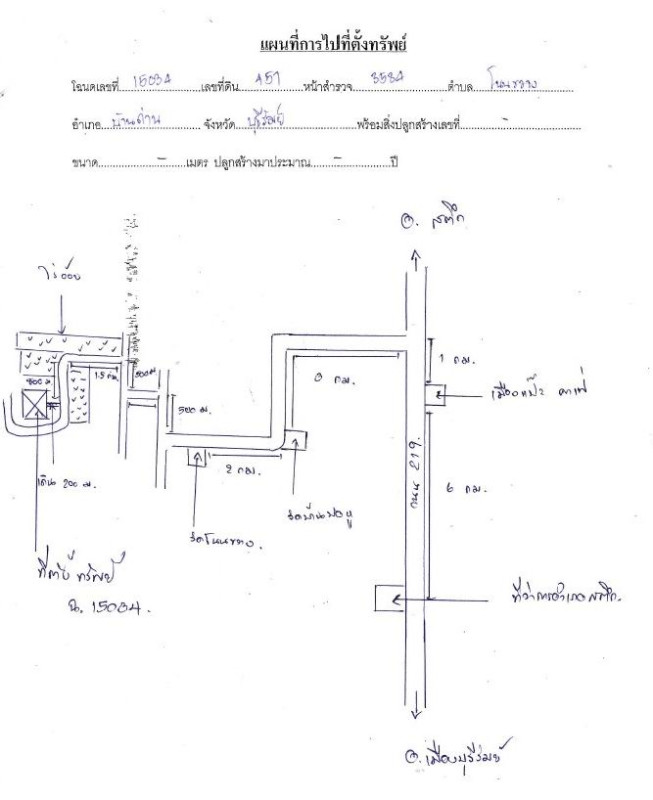 แผนที่การไปที่ตั้งทรัพย์
โฉนดเลขที่ 15034 เลขที่ดิน 457 หน้าสำรวจ 3534 ตำบล โนนขวาง
อำเภอ บ้านด่าน จังหวัด บุรีรัมย์ พร้อมสิ่งปลูกสร้างเลขที่ -
ขนาด - เมตร ปลูกสร้างมาประมาณ - ปี
อ. สตึก
ไร่อ้อย
1 กม.
3 กม.
1.5 กม.
500 ม.
500 ม.
เมืองแป๊ะ คาเฟ่
ถนน 219.
2 กม.
6 กม.
เดิน 200 ม.
วัดโนนขวาง.
ที่ตั้งทรัพย์
ฉ. 15034.
ที่ว่าการอำเภอสตึก.
อ.เมืองบุรีรัมย์